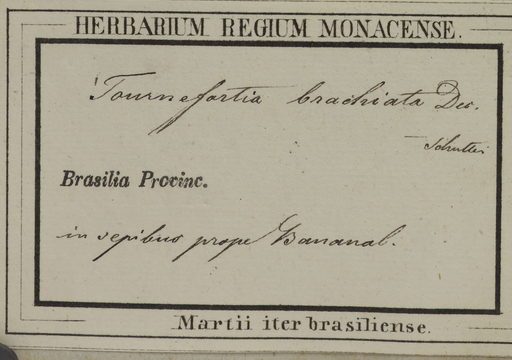 HERBARIUM REGIUM MONACENSE.
Tournefortia brachiata Dec.
Brasilia Provinc.
in sepibus prope Bananal.
Martii iter brasiliense.